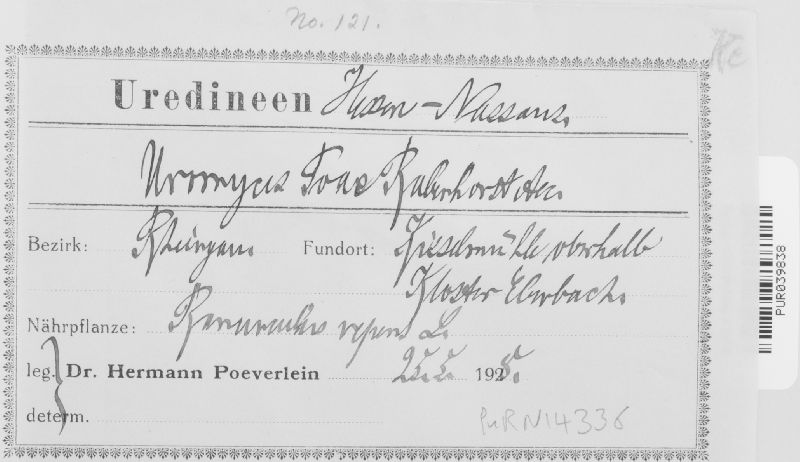 No. 121.
Uredineen Hessen-Nassaus.
Uromyces Poae Rabenhorst
Bezirk: Rheingau. Fundort: oberhalb
Kloster Eberbach.
Nährpflanze: Ranunculus repens L.
leg. Dr. Hermann Poeverlein 1925.
determ.
PUR N14336
PUR039838